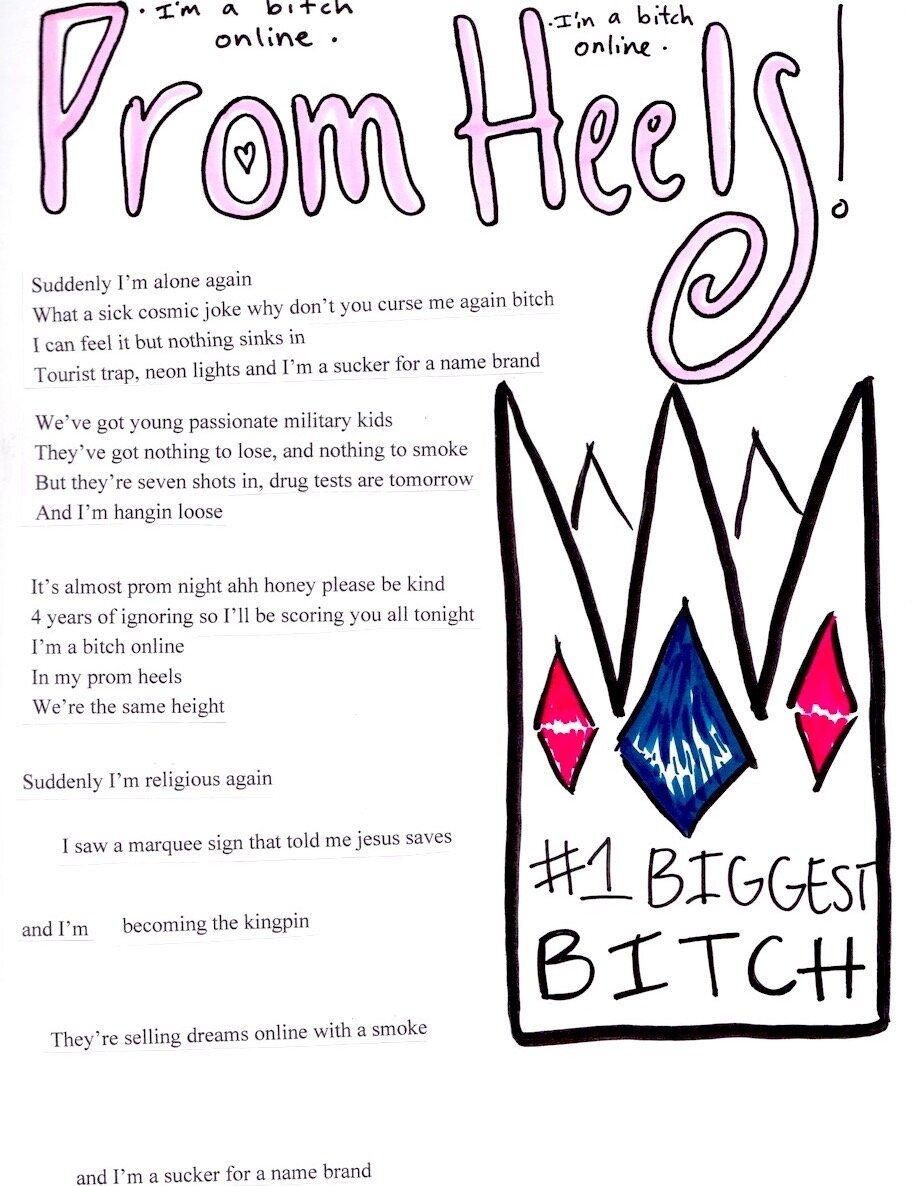 · I'm a bitch
online .
· I'm a bitch
online ·
Prom Heels!
Suddenly I'm alone again
What a sick cosmic joke why don't you curse me again bitch
I can feel it but nothing sinks in
Tourist trap, neon lights and I'm a sucker for a name brand
We've got young passionate military kids
They've got nothing to lose, and nothing to smoke
But they're seven shots in, drug tests are tomorrow
And I'm hangin loose
It's almost prom night ahh honey please be kind
4 years of ignoring so I'll be scoring you all tonight
I'm a bitch online
In my prom heels
We're the same height
Suddenly I'm religious again
I saw a marquee sign that told me jesus saves
and I'm becoming the kingpin
They're selling dreams online with a smoke
and I'm a sucker for a name brand
#1 BIGGEST
BITCH